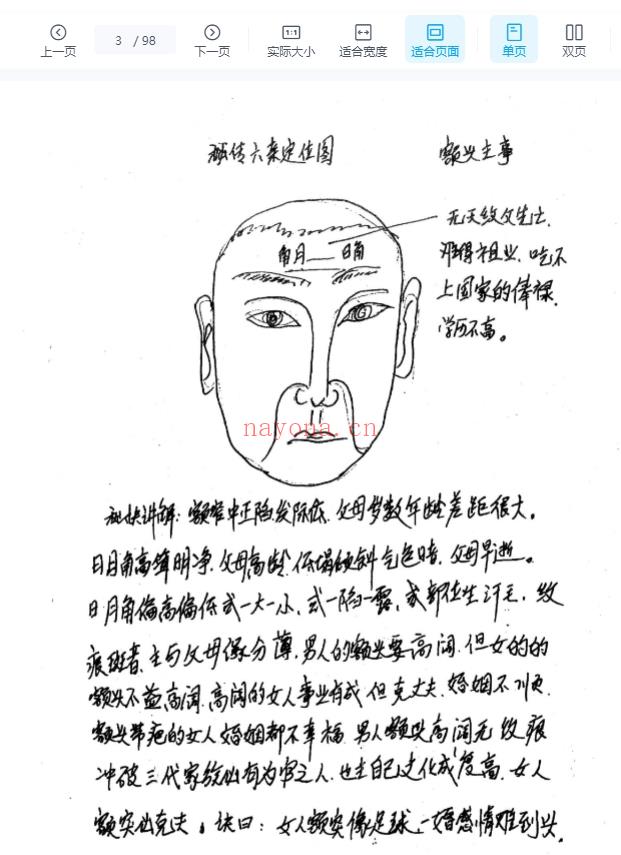 上一页
3 / 98
下一页
1:1
实际大小
适合宽度
适合页面
单页
双页
秘传六亲定位图
额头主事
无天纹父先亡.
难得祖业、吃不
上国家的俸禄.
学历不高。
月角
日角
nayona.cn
秘诀讲解：额窄中正陷发际低、父母岁数年龄差距很大。
日月角高耸明净、父母高龄.低塌倾斜气色暗、父母早逝。
日月角偏高偏低或一大一小、或一陷一露、或部位生汗毛、纹
痕斑者、主与父母缘分薄、男人的额头要高阔.但女的的
额头不益高阔、高阔的女人事业有成但克丈夫、婚姻不顺.
额头带疤的女人婚姻都不幸福.男人额头高阔无纹痕
冲破三代家族必有为官之人.也主自己文化成度高、女人
额突必克夫。诀曰：女人额突像足球、一婚感情难到头.